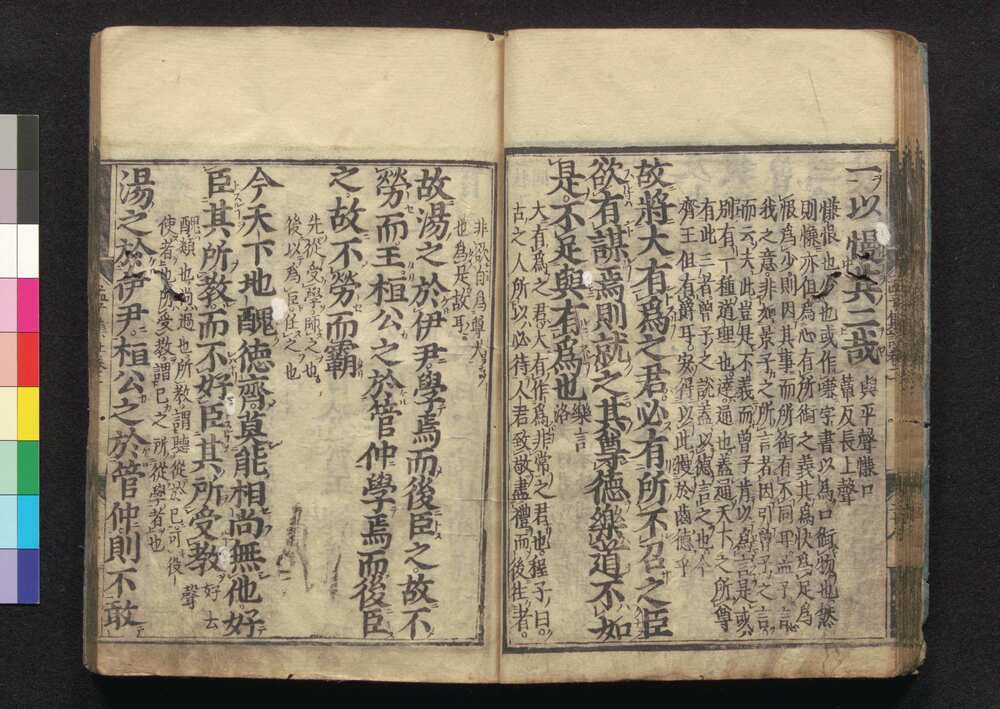 一以慢其二哉 與平聲慊口
簟反長上聲
慊恨也少也或作嗛字書以爲口銜物也然
則慊亦但爲心有所銜之義其爲快爲足爲
恨爲少則因其事而所銜有不同耳孟子言
我之意非如景子之所言者因引曾子之言
而云夫此豈是不義而曾子肯以爲言是或
別有一種道理也達通也蓋通天下之所尊
有此三者曾子之說蓋以德言之也今
齊王但有爵耳安得以此慢於齒德乎
故將大有爲之君必有所不召之臣
欲有謀焉則就之其尊德樂道不如
是不足與有爲也 樂音
洛
大有爲之君大有作爲非常之君也程子曰
古之人所以必待人君致敬盡禮而後往者
非欲自爲尊大
也爲是故耳
故湯之於伊尹學焉而後臣之故不
勞而王桓公之於管仲學焉而後臣
之故不勞而霸
先從受學師之也
後以爲臣任之也
今天下地醜德齊莫能相尚無他好
臣其所教而不好臣其所受教 好去
聲
醜類也尚過也所教謂聽從於己可役
使者也所受教謂己之所從學者也
湯之於伊尹桓公之於管仲則不敢